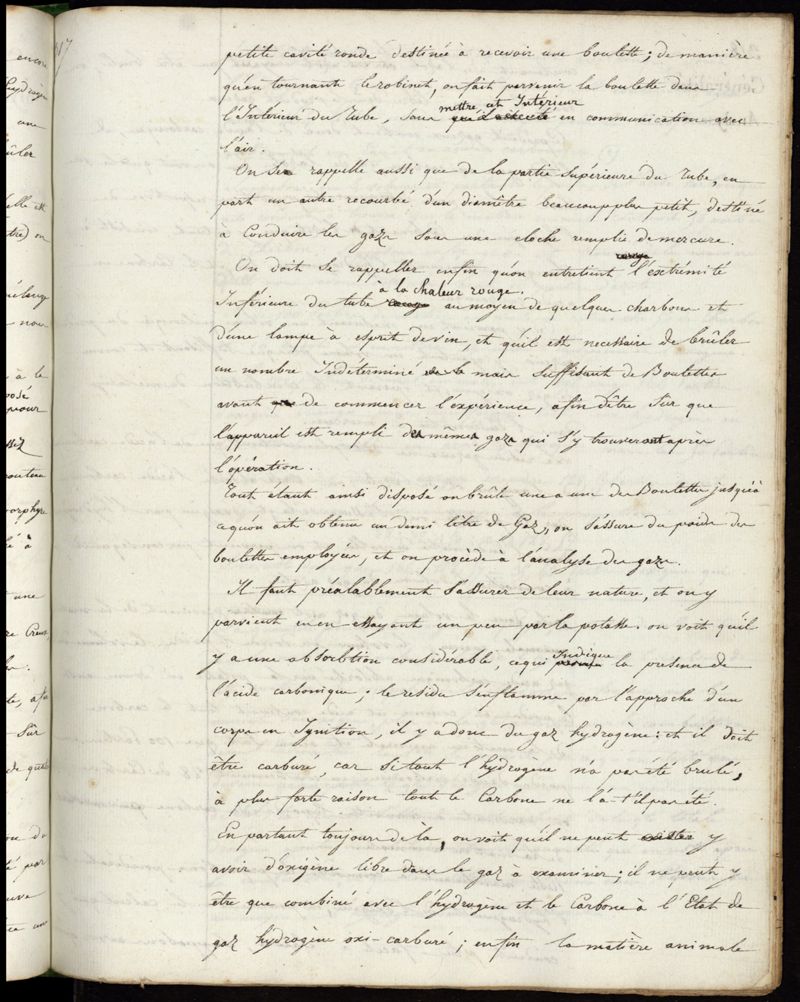 encore
hydrogène
une
brûler
elle est
tre) on
mélange
nous
à le
posé
pour
porphyre
lé à
une
re Creus
te, afin
Sûr
de quel
ou de
té par
317
petite cavité ronde destinée à recevoir une boulette ; de manière
qu'en tournant le robinet, on fait parvenir la boulette dans
mettre cet Intérieur
l'Intérieur du Tube, sans en communication avec
l'air.
On se rappelle aussi que de la partie Supérieure du Tube, en
part un autre recourbé d'un diamètre beaucoup plus petit, destiné
a Conduire les gaz sous une cloche remplie de mercure.
rouge
On doit se rappeller enfin qu'on entretient l'extrémité
à la Chaleur rouge.
Inférieure du tube rouge au moyen de quelques charbons et
d'une lampe à esprit de vin, et qu'il est necessaire de brûler
un nombre Indéterminé mais Suffisant de Boulettes
avant que de commencer l'expérience, afin d'être Sûr que
l'appareil est rempli des mêmes gaz qui S'y trouveront après
l'opération.
Tout étant ainsi disposé on brûle une a une des Boulettes jusqu'à
ce qu'on ait obtenu un demi litre de Gaz, on S'assure du poids des
boulettes employées, et on procède à l'analyse des gaz.
Il faut préalablement S'assurer de leur nature, et on y
parvient en en essayant un peu par la potasse. on voit qu'il
Indique
y a une absorbtion considérable, ce qui prouve la presence de
l'acide carbonique ; le residu S'enflamme par l'approche d'un
corps en Ignition, il y a donc du gaz hydrogène : et il doit
être carburé, car Si tout l'hydrogène n'a pas été brulé,
à plus forte raison tout le Carbone ne l'a-t'il pas été.
En partant toujours de là, on voit qu'il ne peut exister y
avoir d'oxigène libre dans le gaz à examiner ; il ne peut y
être que combiné avec l'hydrogène et le Carbone à l'Etat de
gaz hydrogène oxi-carburé ; enfin la matière animale